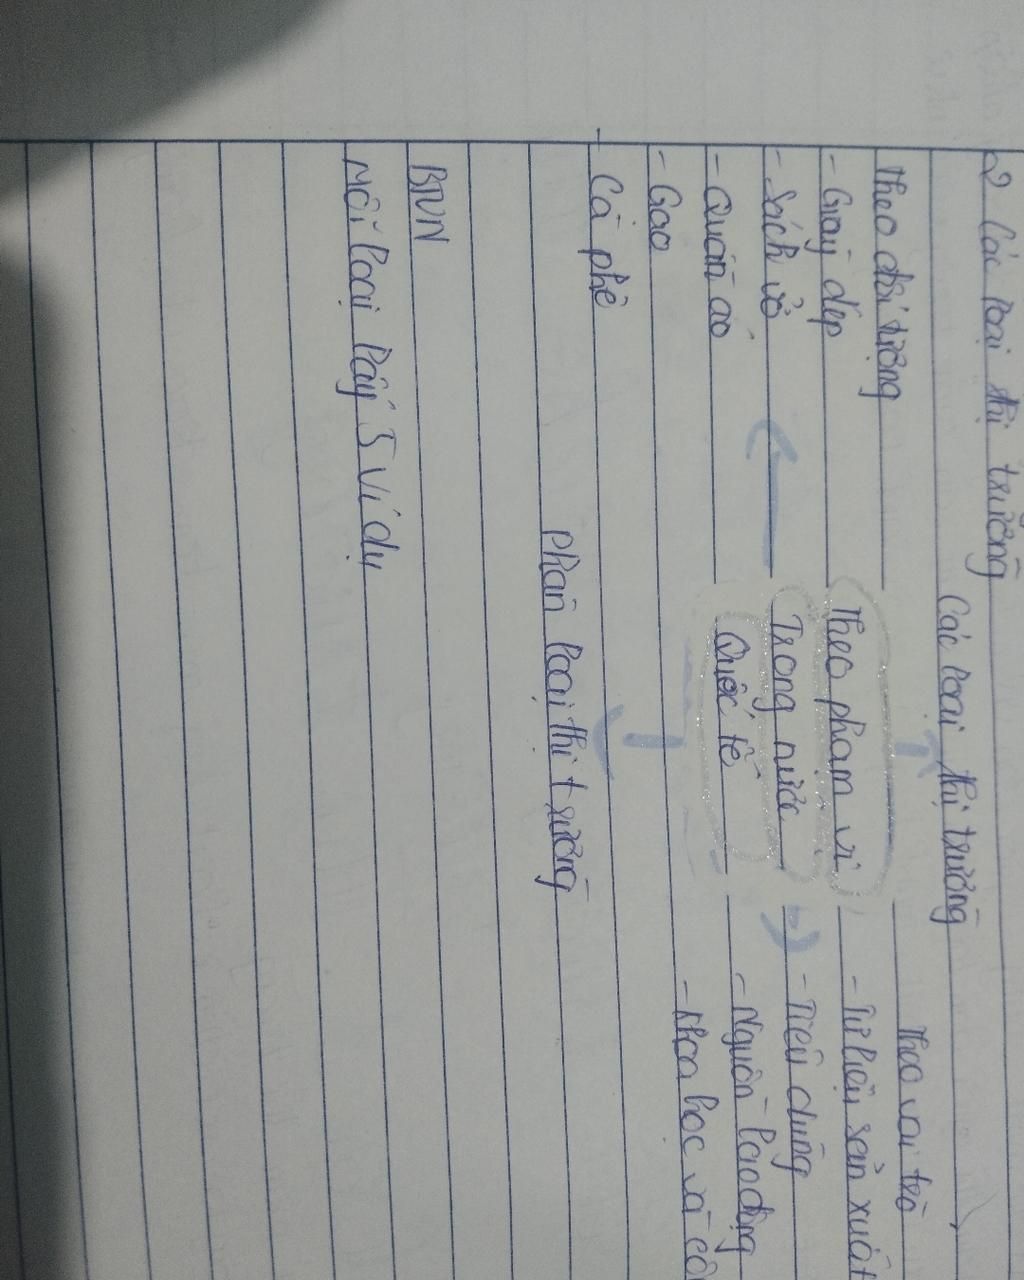 2 Các loại thị trường
Các loại thị trường
Theo đối tượng
- Giày dép
- Sách vở
- Quần áo
- Gạo
Cà phê
Theo phạm vi
Trong nước
Quốc tế
Theo vai trò
- Tư liệu sản xuất
- Tiêu dùng
- Nguồn lao động
- Khoa học và
Phân loại thị trường
BTVN
Mỗi loại lấy 5 ví dụ